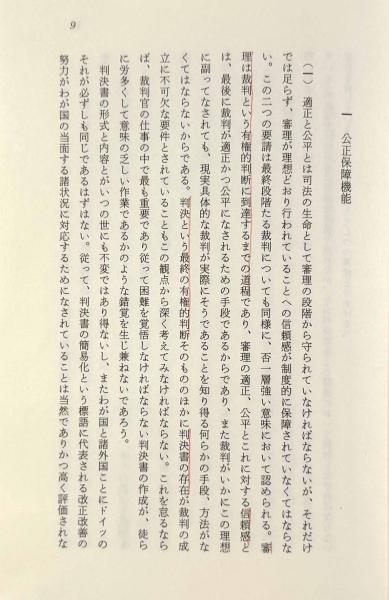 一　公正保障機能
(一)　適正と公平とは司法の生命として審理の段階から守られていなければならないが、それだけ
では足らず、審理が理想どおり行われていることへの信頼感が制度的に保障されていなくてはならな
い。この二つの要請は最終段階たる裁判についても同様に、否一層強い意味において認められる。審
理は裁判という有権的判断に到達するまでの道程であり、審理の適正、公平とこれに対する信頼感と
は、最後に裁判が適正かつ公平になされるための手段であるからであり、また裁判がいかにこの理想
に副ってなされても、現実具体的な裁判が実際にそうであることを知り得る何らかの手段、方法がな
くてはならないからである。判決という最終の有権的判断そのもののほかに判決書の存在が裁判の成
立に不可欠な要件とされていることもこの観点から深く考えてみなければならない。これを怠るなら
ば、裁判官の仕事の中で最も重要であり従って困難を覚悟しなければならない判決書の作成が、徒ら
に労多くして意味の乏しい作業であるかのような錯覚を生じ兼ねないであろう。
判決書の形式と内容とがいつの世にも不変ではあり得ないし、またわが国と諸外国ことにドイツの
それが必ずしも同じであるはずはない。従って、判決書の簡易化という標語に代表される改正改善の
努力がわが国の当面する諸状況に対応するためになされていることは当然でありかつ高く評価されな
9